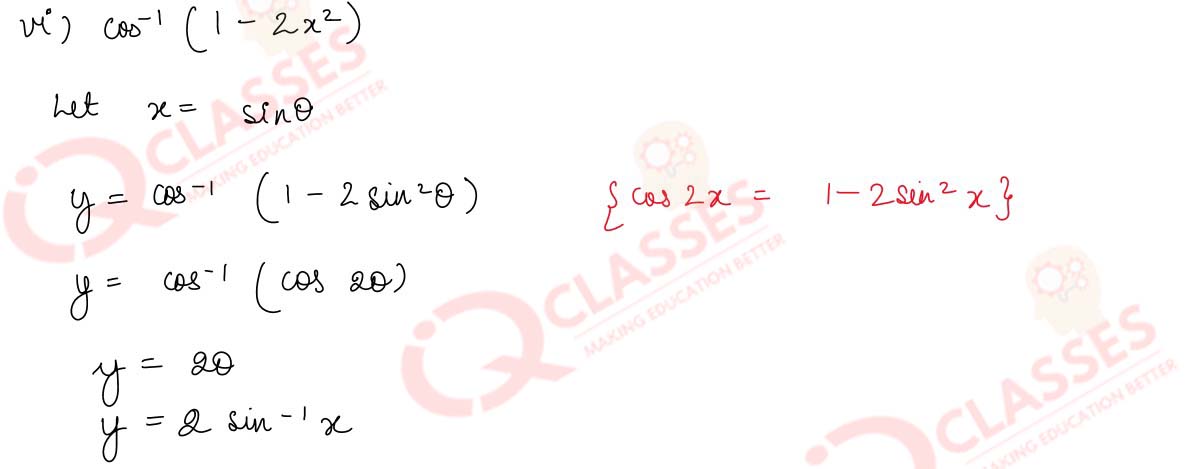 vi) cos⁻¹ (1 - 2x²)
Let x = sinθ
y = cos⁻¹ (1 - 2 sin²θ) {cos 2x = 1 - 2 sin² x}
y = cos⁻¹ (cos 2θ)
y = 2θ
y = 2 sin⁻¹ x
IQ CLASSES
MAKING EDUCATION BETTER
IQ CLASSES
MAKING EDUCATION BETTER
IQ CLASSES
MAKING EDUCATION BETTER